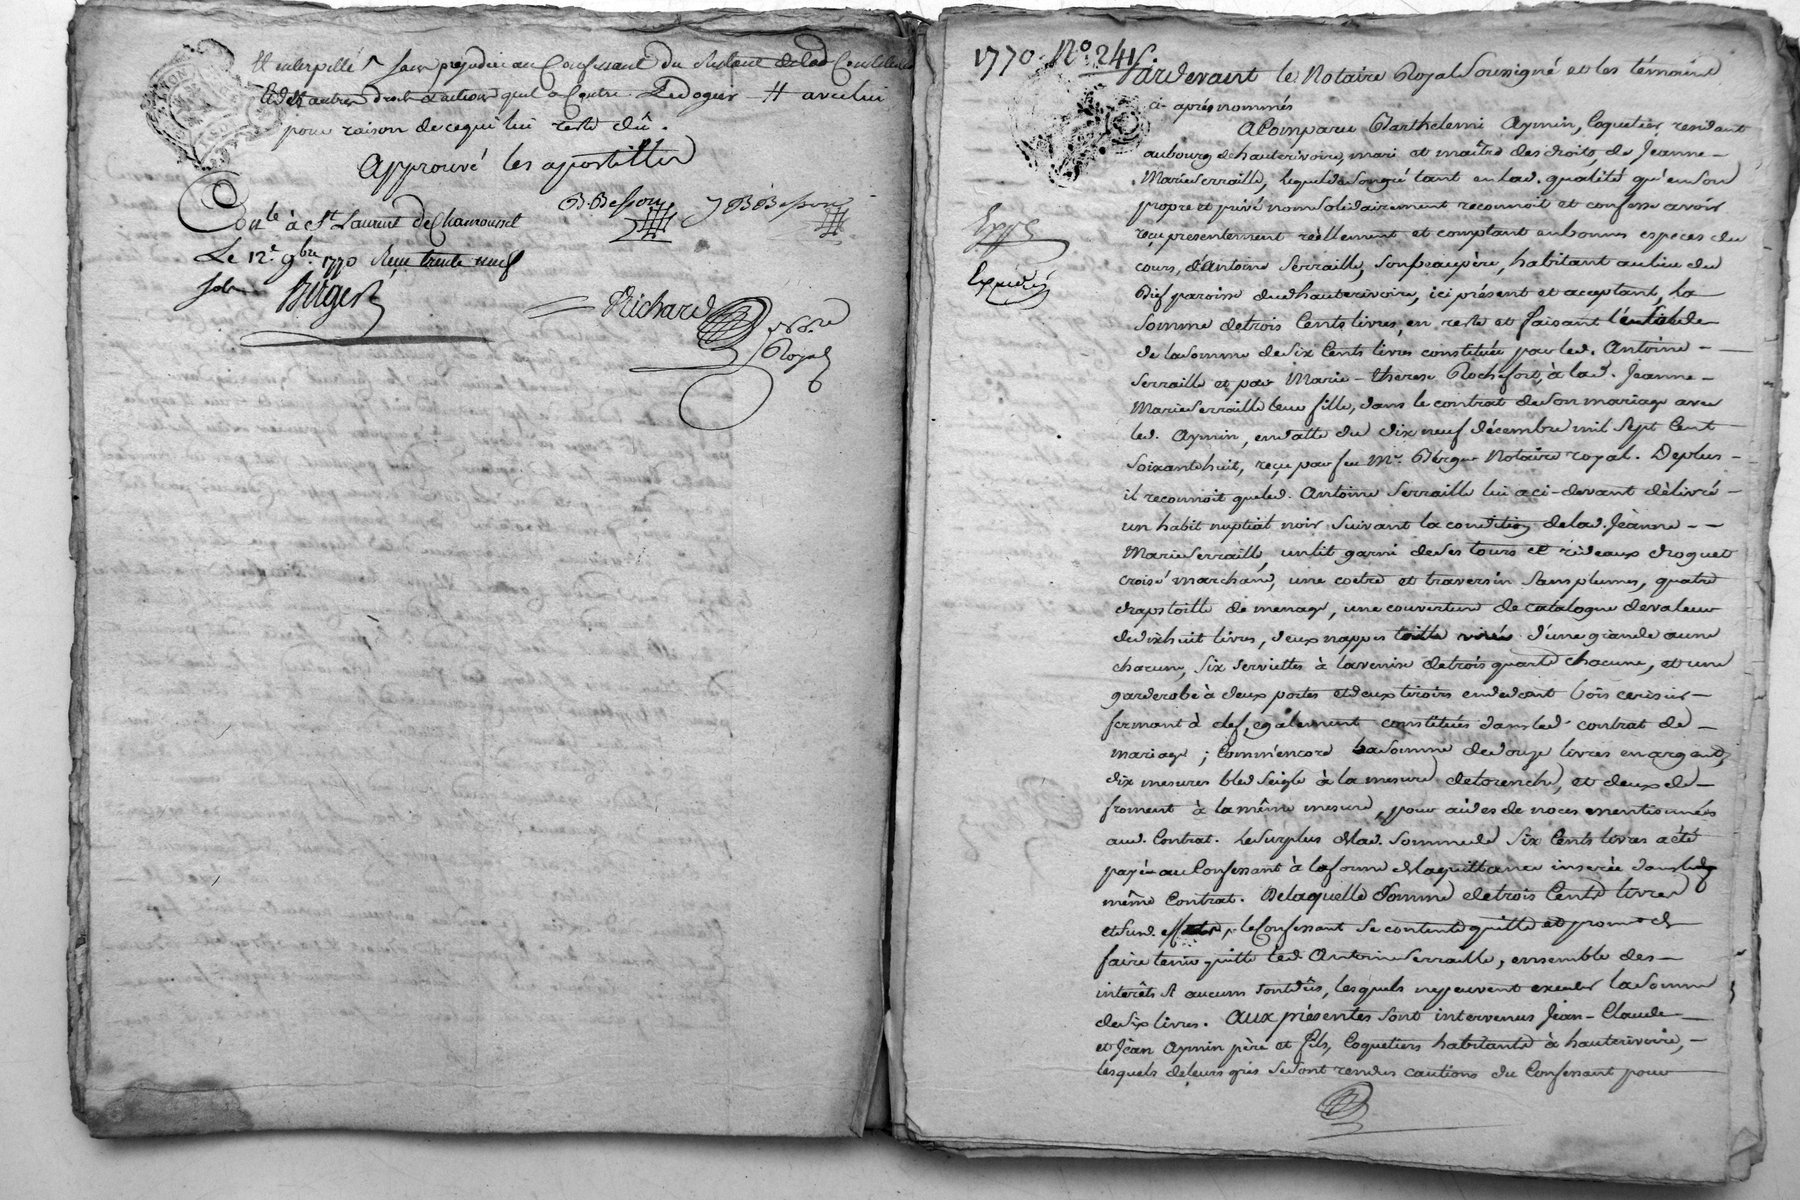 # interpellé ^ sans prejudice au Confessant du restant de lad
et des autres droits et actions qu'il a Contre # avec lui
pour raison de ce qui lui reste dû.
Approuvé les apostilles
B Besson J B Besson
Conlé à St Laurent de Chamousset
Le 12e 9bre 1770 Reçu trente neuf
sols Birger
Richard
Nore
Royal
1770. No. 241
Pardevant le Notaire Royal Soussigné et les témoins
ci-après nommés
A Comparu Barthelemi Aymin, Coquetier residant
au bourg de hauterivoire, mari et maître des droits de Jeanne-
Marie Serraille, lequel de son gré tant en lad. qualité qu'en son
propre et privé nom solidairement reconnoit et confesse avoir
reçu presentement réellement et comptant en bonnes especes du
cours, d'Antoine Serraille, son beaupère, habitant au lieu du
Bief paroisse dud hauterivoire, ici présent et acceptant, la
Expédié
somme de trois Cents livres, en reste et faisant l'entiere
de la somme de six Cents livres constituée par led. Antoine-
Serraille et par Marie-thérese Rochefort, à lad. Jeanne-
Marie Serraille leur fille, dans le contrat de son mariage avec
led. Aymin, en datte du dix neuf décembre mil sept Cent
soixante huit, reçu par feu Me. Berger Notaire royal. De plus-
il reconnoit que led. Antoine Serraille lui a ci-devant délivré-
un habit nuptial noir suivant la condition de lad. Jeanne-
Marie Serraille, un lit garni de ses tours et rideaux droguet
croisé marchand, une coetre et traversin sans plumes, quatre
draps toille de menage, une couverture de catalogne de valeur
de dixhuit livres, deux nappes toille d'une grande aune
chacune, six serviettes à la venise de trois quarts chacune, et une
garderobe à deux portes et deux tiroirs en devant bois cerisier-
fermant à clef, également constitués dans led. contrat de-
mariage; Comm'encore la somme de douze livres en argent,
dix mesures bled seigle à la mesure de lorenche, et deux de-
froment à la même mesure, pour aides de noces mentionnées
aud. Contrat. Le surplus de lad. somme de six Cents livres a été
payé au Confessant à la forme de la quittance inserée dans led
même Contrat. De laquelle somme de trois Cents livres
et susd. effets, le Confessant se contente quitte et promet de
faire tenir quitte led. Antoine Serraille, ensemble des-
interêts si aucuns sont dûs, lesquels ne peuvent exceder la somme
de six livres. Aux présentes sont intervenus Jean-Claude-
et Jean Aymin père et fils, Coquetiers habitants à hauterivoire,-
lesquels de leurs grés se sont rendus cautions du Confessant pour